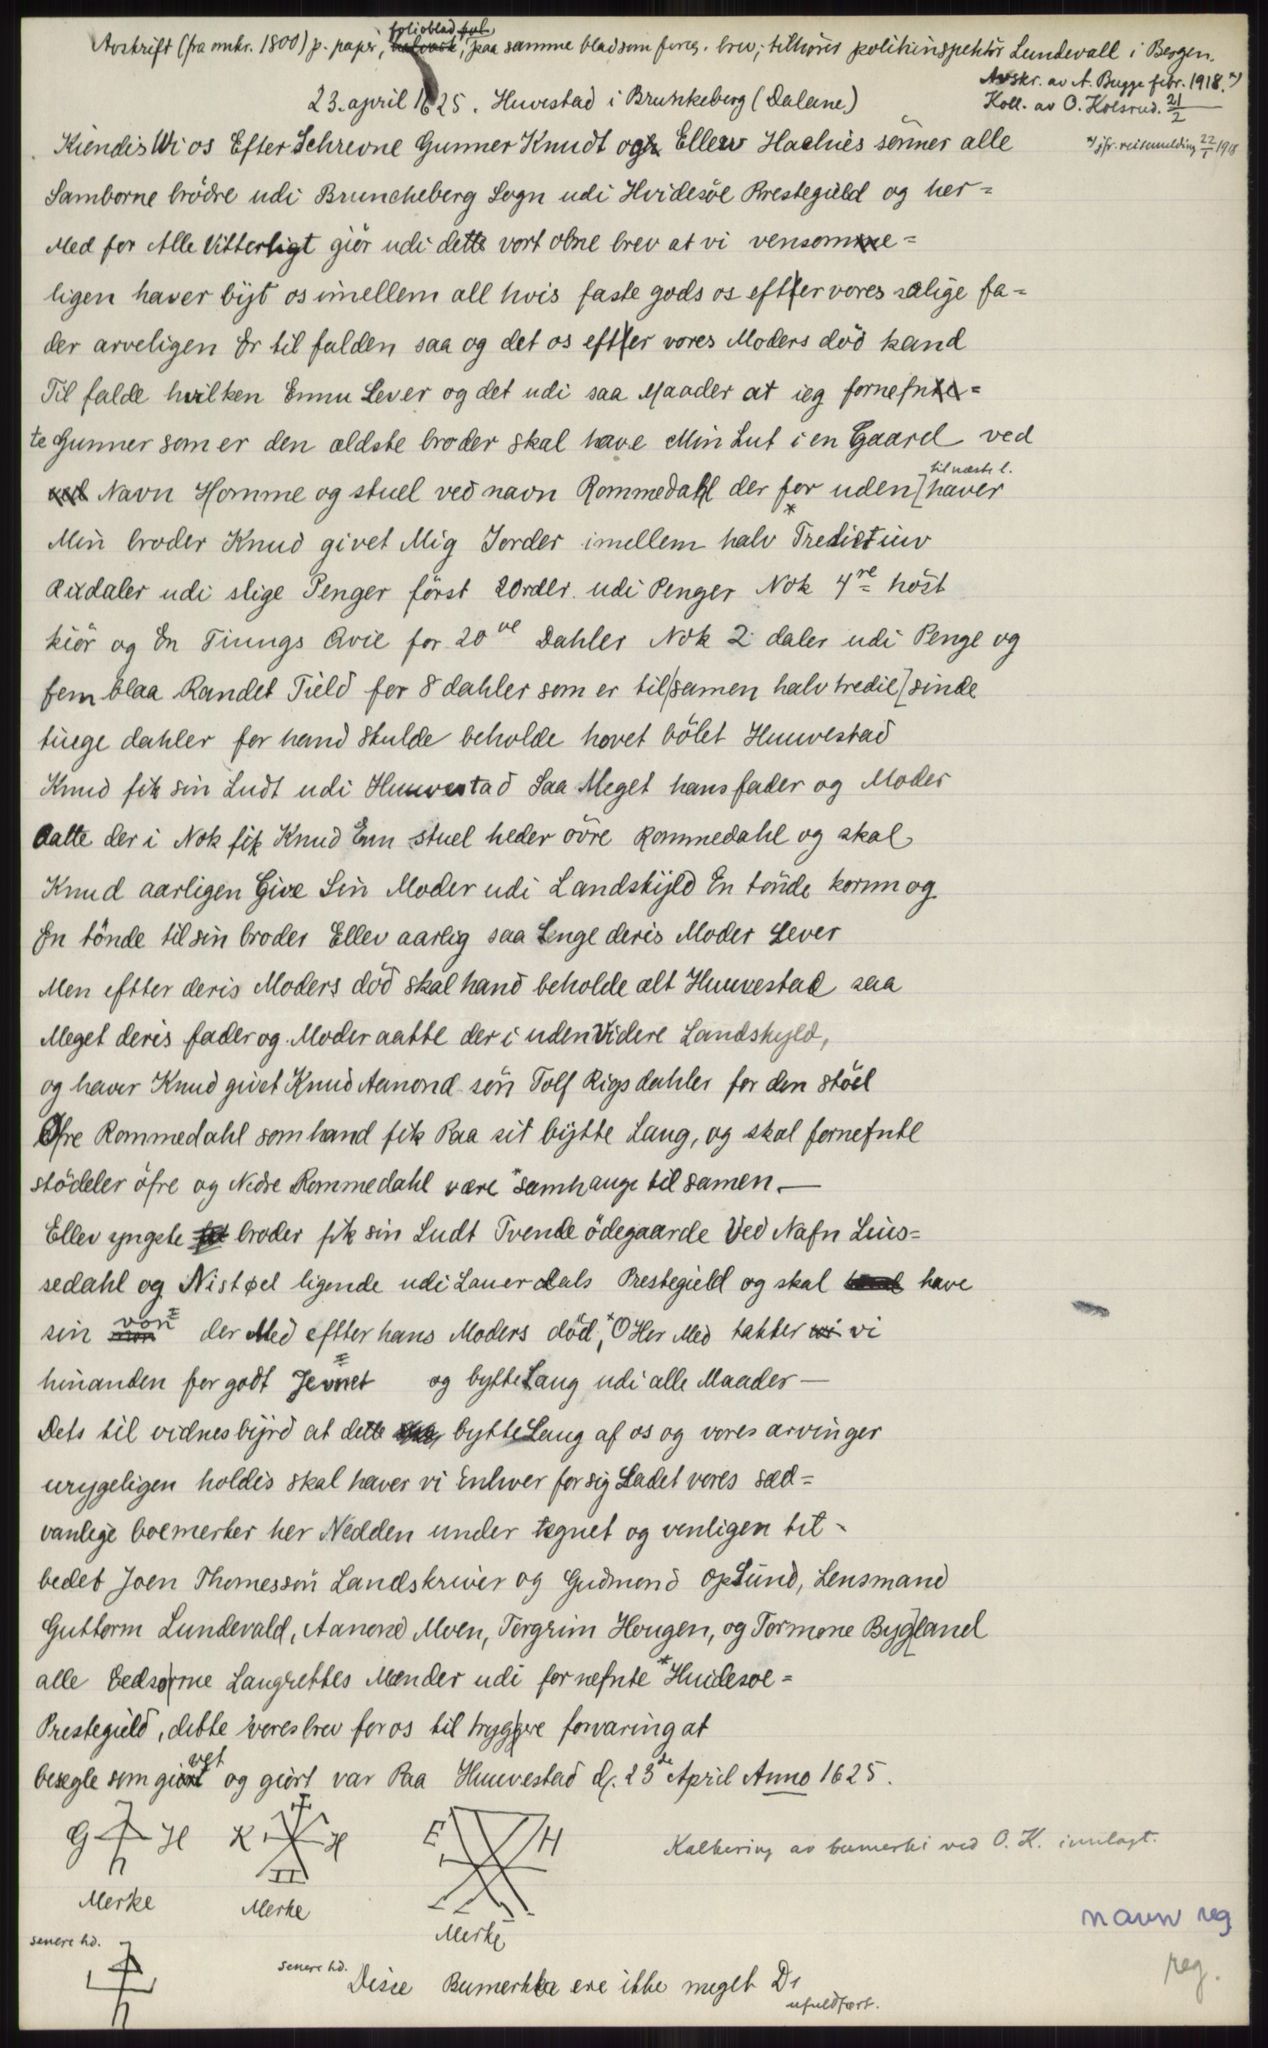 Avskrift (fra omkr. 1800) p. papir, folioblad, paa samme blad som foreg. brev; tilhører politiinspektør Lundevall i Bergen.
Avskr. av A. Bugge febr. 1918. *)
23. april 1625. Huvestad i Brunkeberg (Dalane)
Koll. av O. Kolsrud. 21/2
*) jfr. reisemelding 22/1 1918
Kiendis Wi os Efter Schrevne Gunner Knudt og Ellew Haelnies sönner alle
Samborne brödre udi Bruncheberg Sogn udi Hvidesöe Prestegield og her=
Med for Alle Vitterligt giör udi dette vort obne brev at vi vensomme=
ligen haver bijt os imellem all hvis faste gods os eftter vores salige fa=
der arveligen Er til falden saa og det os eftter vores Moders död kand
Til falde hvilken Ennu Lever og det udi saa Maader at ieg fornefn=
te Gunner som er den ældste broder skal have Min Lut i en Gaard ved
Navn Homme og stuel ved navn Rommedahl der for uden [haver
til næste l.
Min broder Knud givet Mig Jorder imellem halv *Tredictiuv
Rixdaler udi slige Penger först 20rdlr. udi Penger Nok 4re höst
kiör og En Tiungs Qvie for 20ve Dahler Nok 2 daler udi Penge og
fem blaa Randet Tield for 8 dahler som er til samen halv tredie sinde
tiuge dahler for hand skulde beholde hovet bölet Huuvestad
Knud fik sin Ludt udi Huuvestad Saa Meget hans fader og Moder
Aatte der i Nok fik Knud Enn stuel heder övre Rommedahl og skal
Knud aarligen Give Sin Moder udi Landskijld En tönde kornn og
En tönde til sin broder Ellev aarlig saa Lenge deris Moder Lever
Men eftter deris Moders död skal hand beholde alt Huuvestad saa
Meget deris fader og Moder aatte der i uden Videre Landskyld,
og haver Knud givet Knud Aanond sön Tolf Rigsdahler for den stöel
Öfre Rommedahl som hand fik Paa sit bijtte Laug, og skal fornefnte
stödeler öfre og Nedre Rommedahl være *samhauge til samen.—
Ellev yngste broder fik sin Ludt Tvende ödegaarde Ved Nafn Lius=
sedahl og Nistøel ligende udi Lauerdals Prestegield og skal have
sin von der Med eftter hans Moders död, *O Her Med takter vi
hinanden for godt Jevnet og bytte Laug udi alle Maader—
Dets til vidnesbijrd at dette bytte Laug af os og vores arvinger
urygeligen holdis skal haver vi Enhver for sig Ladet vores sæd=
vanlige boemerker her Nedden under tegnet og venligen til-
bedet Joen Thomessön Landskriver og Gudmond Opsund, Lensmand
Guttorm Lundevald, Aanond Moen, Torgrim Hougen, og Tormone Bygland
alle Eedsorne Laugrettes Mænder udi fornefnte *Huidesoe=
Prestegield, dette vores brev for os til tryggere forvaring at
besegle som giort og giört var Paa Huuvestad d. 23de April Anno 1625.
G H K H E H
Kalkering av bumerki ved O. K. innlagt.
Merke Merke Merke
navn reg
reg.
senere hd.
senere hd. Disse Bumerkker ere ikke meget D1
ufuldført.